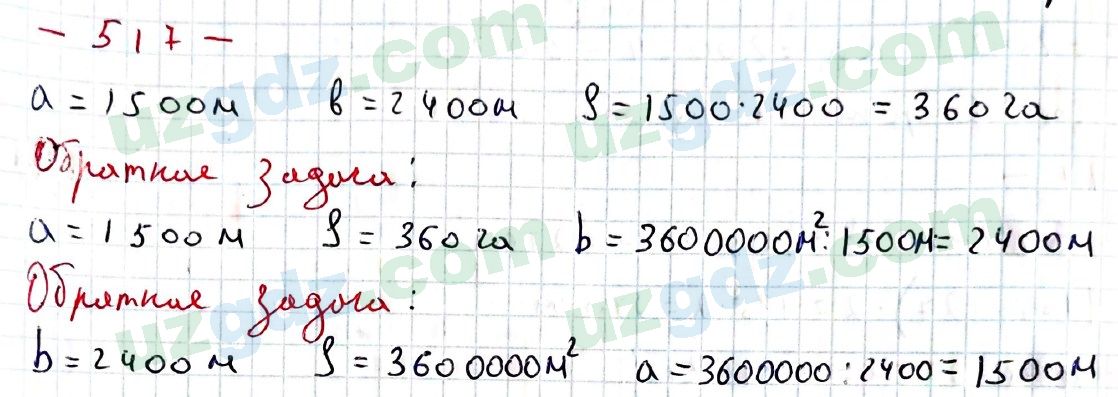 - 517 -
a = 1500м в = 2400м S = 1500·2400 = 360 га
Обратная задача:
a = 1500м S = 360 га b = 3600000м²:1500м = 2400м
Обратная задача:
b = 2400м S = 3600000м² a = 3600000:2400 = 1500м
uzgdz.com
uzgdz.com
uzgdz.com
uzgdz.com